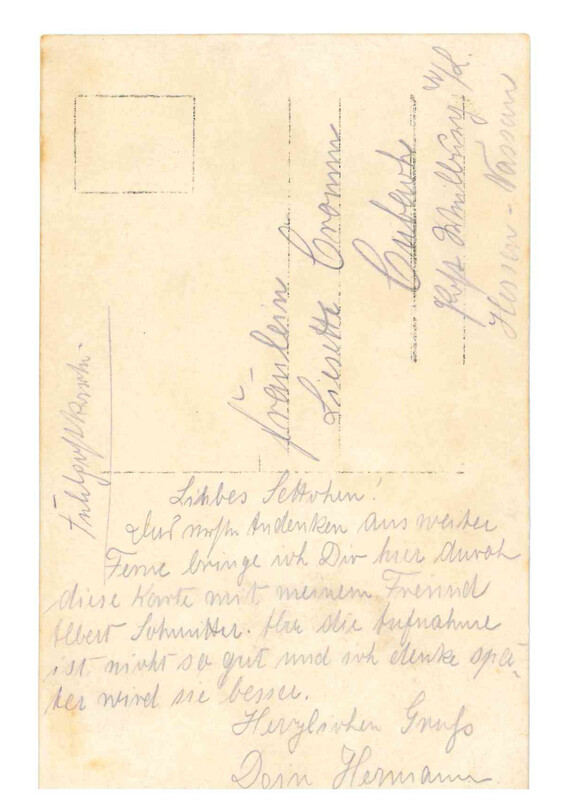 Feldpostkarte.
Fräulein
Liesette Cromm
Cubach
Post Weilburg a/L.
Hessen-Nassau
Liebes Settchen!
Das erste Andenken aus weiter
Ferne bringe ich Dir hier durch
diese Karte mit meinem Freund
Albert Schmitter. Aber die Aufnahme
ist nicht so gut und ich denke spä-
ter wird sie besser.
Herzlichen Gruß
Dein Hermann